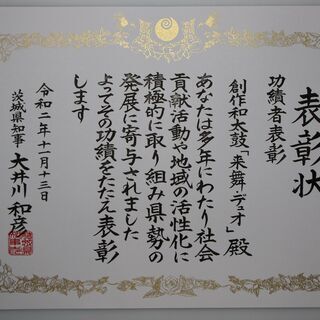 表彰状
功績者表彰
創作和太鼓「来舞・デュオ」殿
あなたは多年にわたり社会
貢献活動や地域の活性化に
積極的に取り組み県勢の
発展に寄与されました
よってその功績をたたえ表彰
します
令和二年十一月十三日
茨城県知事 大井川和彦